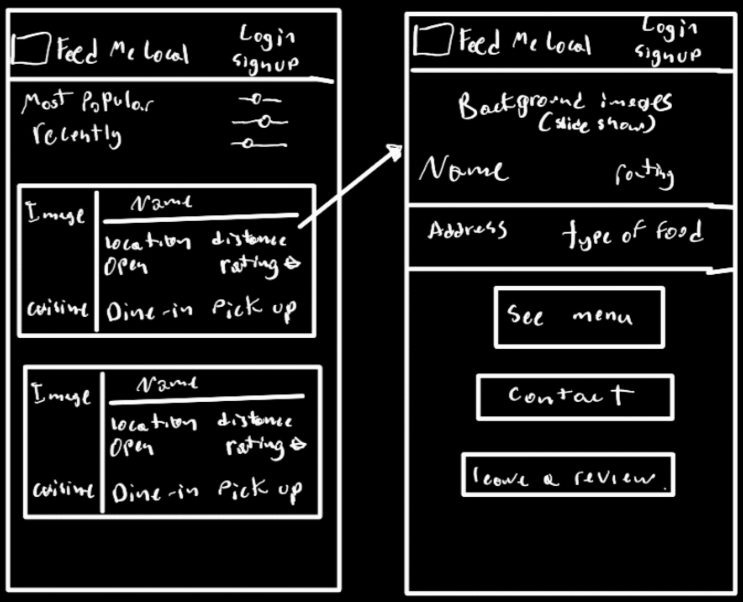 Feed Me Local
Login
signup
Most Popular
recently
Image
Name
location distance
Open rating
cuisine
Dine-in Pick up
Image
Name
location distance
Open rating
cuisine
Dine-in Pick up
Feed Me Local
Login
signup
Background images
(slide show)
Name
rating
Address
type of food
See menu
Contact
leave a review.